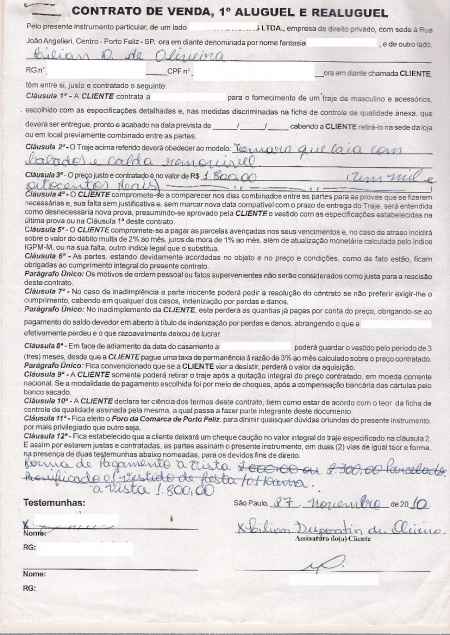 CONTRATO DE VENDA, 1º ALUGUEL E REALUGUEL
Pelo presente instrumento particular, de um lado LTDA., empresa de direito privado, com sede à Rua
João Angelieri, Centro - Porto Feliz - SP, ora em diante denominada por nome fantasia , e de outro lado,
de Oliveira
RG nº , CPF nº , ora em diante chamada CLIENTE,
têm entre si, justo e contratado o seguinte:
Cláusula 1ª - A CLIENTE contrata a para o fornecimento de um traje de masculino e acessórios,
escolhido com as especificações detalhadas e, nas medidas discriminadas na ficha de controle de qualidade anexa, que
deverá ser entregue, pronto e acabado na data prevista de ____/____/____, cabendo a CLIENTE retirá-lo na sede da loja
ou em local previamente combinado entre as partes.
Cláusula 2ª - O Traje acima referido deverá obedecer ao modelo: Tomara que caia com
babados e calda removível
Cláusula 3ª - O preço justo e contratado e no valor de R$ 1.800,00 (Um mil e
oitocentos reais)
Cláusula 4ª - O CLIENTE compromete-se a comparecer nos dias combinados entre as partes para as provas que se fizerem
necessárias e, sua falta sem justificativa e, sem marcar nova data compatível com o prazo de entrega do Traje, será entendida
como desnecessária nova prova, presumindo-se aprovado pela CLIENTE o vestido com as especificações estabelecidas na
última prova ou na Cláusula 1ª deste contrato.
Cláusula 5ª - O CLIENTE compromete-se a pagar as parcelas avençadas nos seus vencimentos e, no caso de atraso incidirá
sobre o valor do débito multa de 2% ao mês, juros de mora de 1% ao mês, além de atualização monetária calculada pelo índice
IGPM-M, ou na sua falta, outro índice legal que o substitua.
Cláusula 6ª - As partes, estando devidamente acordadas no objeto e no preço e condições, como de fato estão, ficam
obrigadas ao cumprimento integral do presente contrato.
Parágrafo Único: Os motivos de ordem pessoal ou fatos supervenientes não serão considerados como justa para a rescisão
deste contrato.
Cláusula 7ª - No caso de inadimplência a parte inocente poderá pedir a resolução do contrato se não preferir exigir-lhe o
cumprimento, cabendo em qualquer dos casos, indenização por perdas e danos.
Parágrafo Único: No inadimplemento da CLIENTE, esta perderá as quantias já pagas por conta do preço, obrigando-se ao
pagamento do saldo devedor em aberto à título de indenização por perdas e danos, abrangendo o que a
efetivamente perdeu e o que razoavelmente deixou de lucrar.
Cláusula 8ª - Em face de adiamento da data do casamento a poderá guardar o vestido pelo período de 3
(tres) meses, desde que a CLIENTE pague uma taxa de permanência à razão de 3% ao mês calculado sobre o preço contratado.
Parágrafo Único: Fica convencionado que se a CLIENTE vier a desistir, perderá o valor da aquisição.
Cláusula 9ª - A CLIENTE somente poderá retirar o traje após a quitação integral do preço contratado, em moeda corrente
nacional. Se a modalidade de pagamento escolhida foi por meio de cheques, após a compensação bancária das cártulas pelo
banco sacado.
Cláusula 10ª - A CLIENTE declara ter ciência dos termos deste contrato, bem como estar de acordo com o teor da ficha
de controle de qualidade assinada pela mesma, a qual passa a fazer parte integrante deste documento.
Cláusula 11ª - Fica eleito o Foro da Comarca de Porto Feliz, para dirimir quaisquer dúvidas oriundas do presente instrumento,
por mais privilegiado que outro seja.
Cláusula 12ª - Fica estabelecido que a cliente deixará um cheque caução no valor integral do traje especificado na cláusula 2.
E assim por estarem justas e contratadas, as partes assinam o presente instrumento, em duas (2) vias de igual teor e forma,
na presença de duas testemunhas abaixo nomeadas, para os devidos fins de direito.
Forma de Pagamento à vista ou Parcelado
vestido de festa
à vista 1.800,00
Testemunhas:
São Paulo, 27 novembro de 2010
Nome:
RG:
Assinatura do(a) Cliente
Nome:
RG: